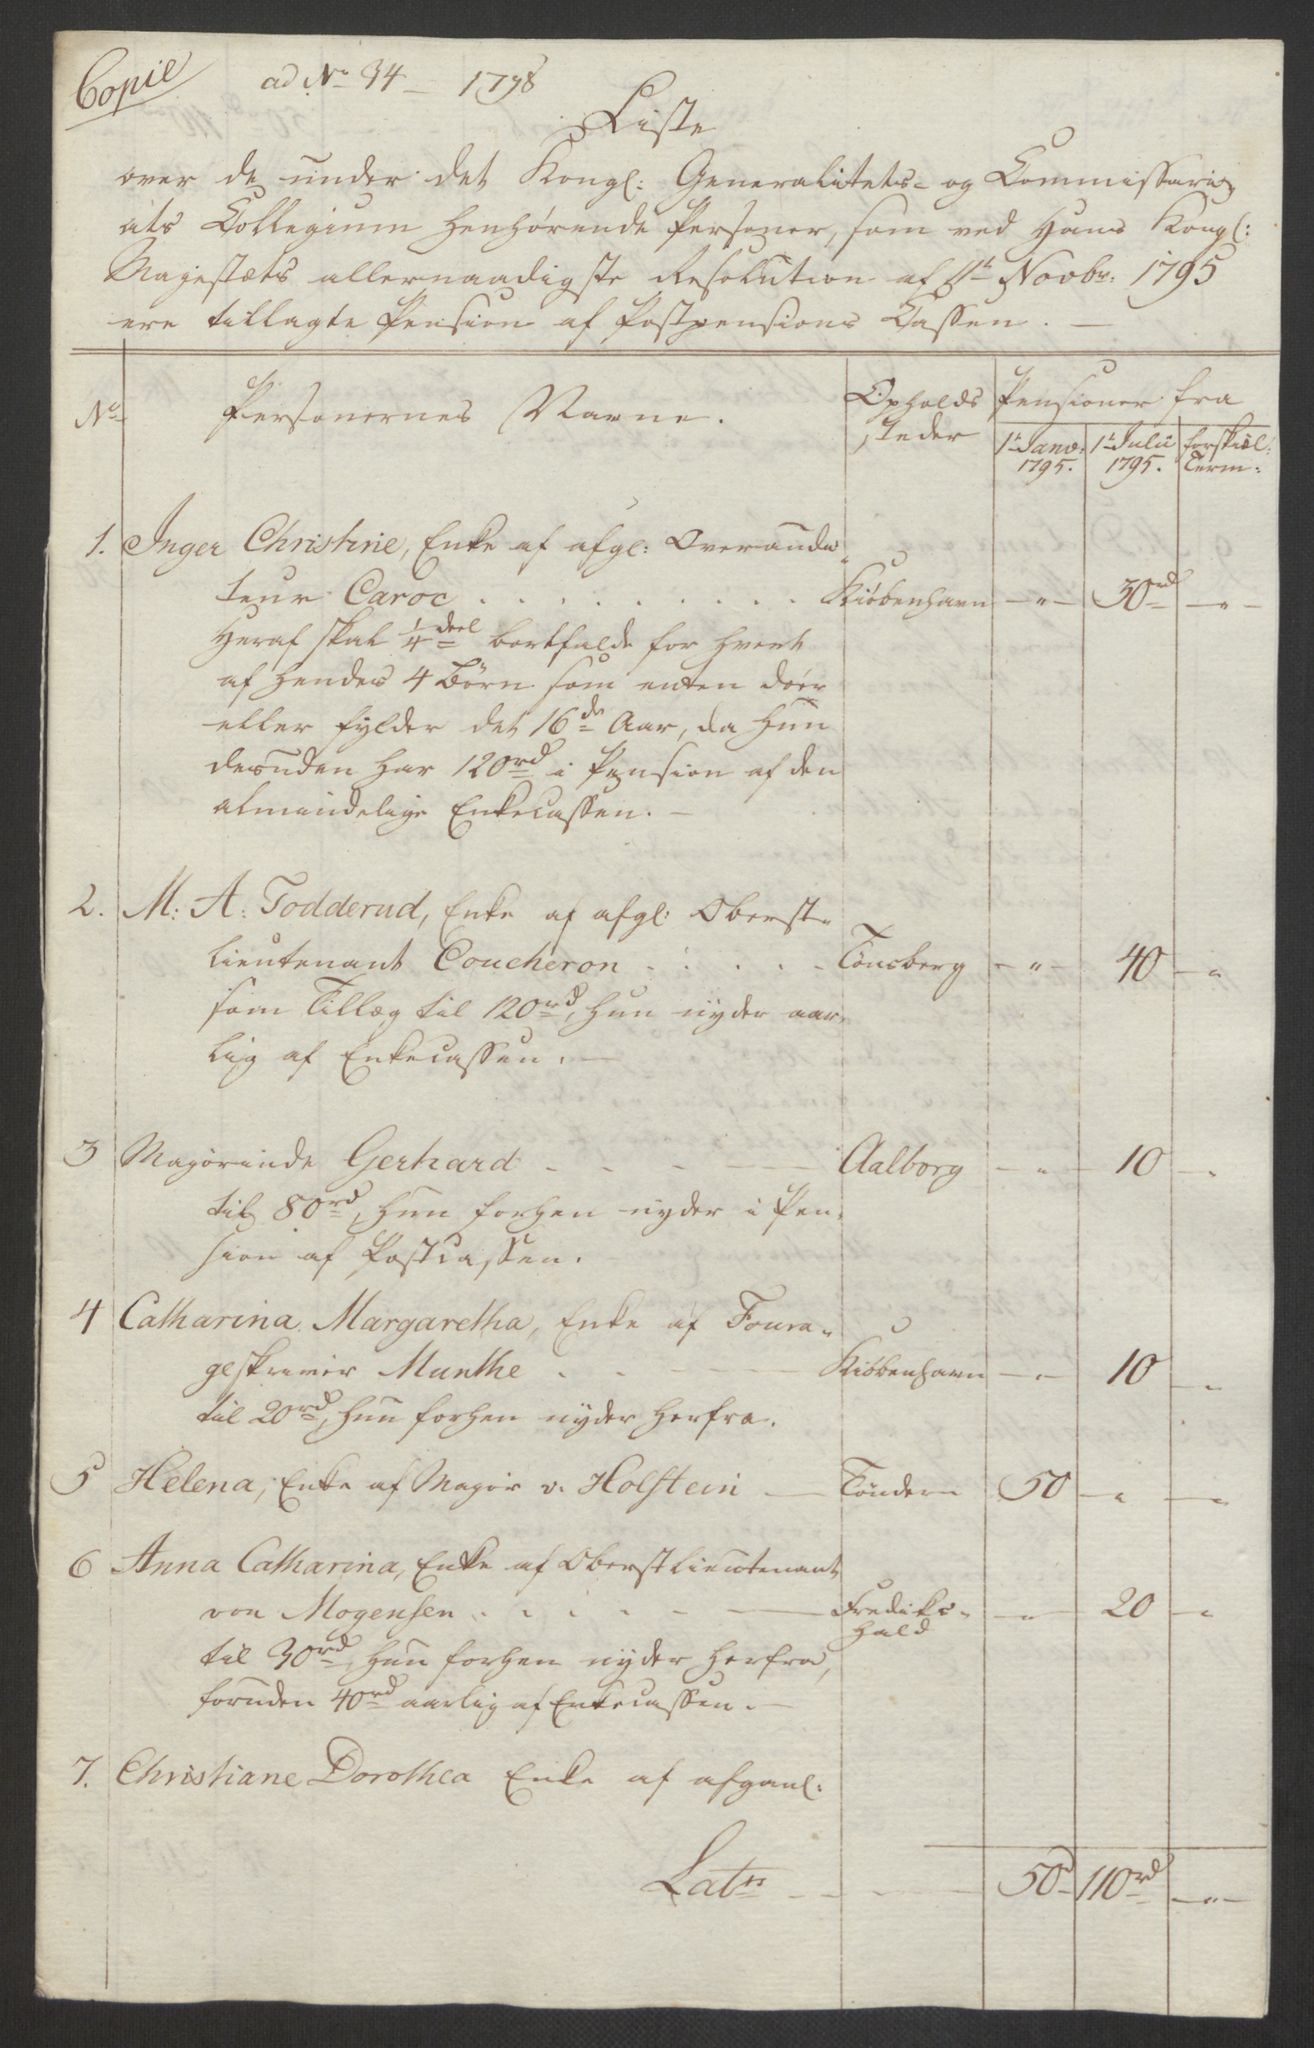 Copie
ad No 34 - 1798
Liste
over de under det Kongl: Generalitets- og Commissari-
ats Collegium henhørende Personer, som ved Hans Kongl:
Majestæts allernaadigste Resolution af 11t Novbr: 1795
ere tillagte Pension af Postpensions Cassen. -
No
Personernes Navne.
Opholds
steder
Pensioner fra
1t Janv:
1795.
1t Julii
1795.
forskiel:
Term:
1. Inger Christine, Enke af afgl: Overaudi-
teur Caroc . . . . . . . . . Kiøbenhavn - " - 30rd - " -
Heraf skal 1/4 deel bortfalde for hvert
af hendes 4 Børn som enten døer
eller fylder det 16de Aar, da Hun
desuden har 120rd i Pension af den
almindelige Enkecassen. -
2. M: A: Todderud, Enke af afgl: Oberst-
lieutenant Coucheron . . . . . Tønsberg - " - 40 - "
som Tillæg til 120rd, hun nyder aar-
lig af Enkecassen. -
3 Majorinde Gerhard - - - - Aalborg - " - 10 - "
til 80rd, hun forhen nyder i Pen-
sion af Postcassen.
4 Catharina Margaretha, Enke af Foura-
geskriver Munthe . . - Kiøbenhavn - " - 10 - "
til 20rd, hun forhen nyder herfra.
5 Helena, Enke af Major v. Holstein - Tøndern 50 - " - "
6 Anna Catharina, Enke af Oberstlieutenant
von Mogensen . . . . - - Fredriks-
hald - " 20 - "
til 30rd, hun forhen nyder herfra,
foruden 40rd aarlig af Enkecassen. -
7. Christiane Dorothea Enke af afganl:
Latrs - - 50rd 110rd - " -